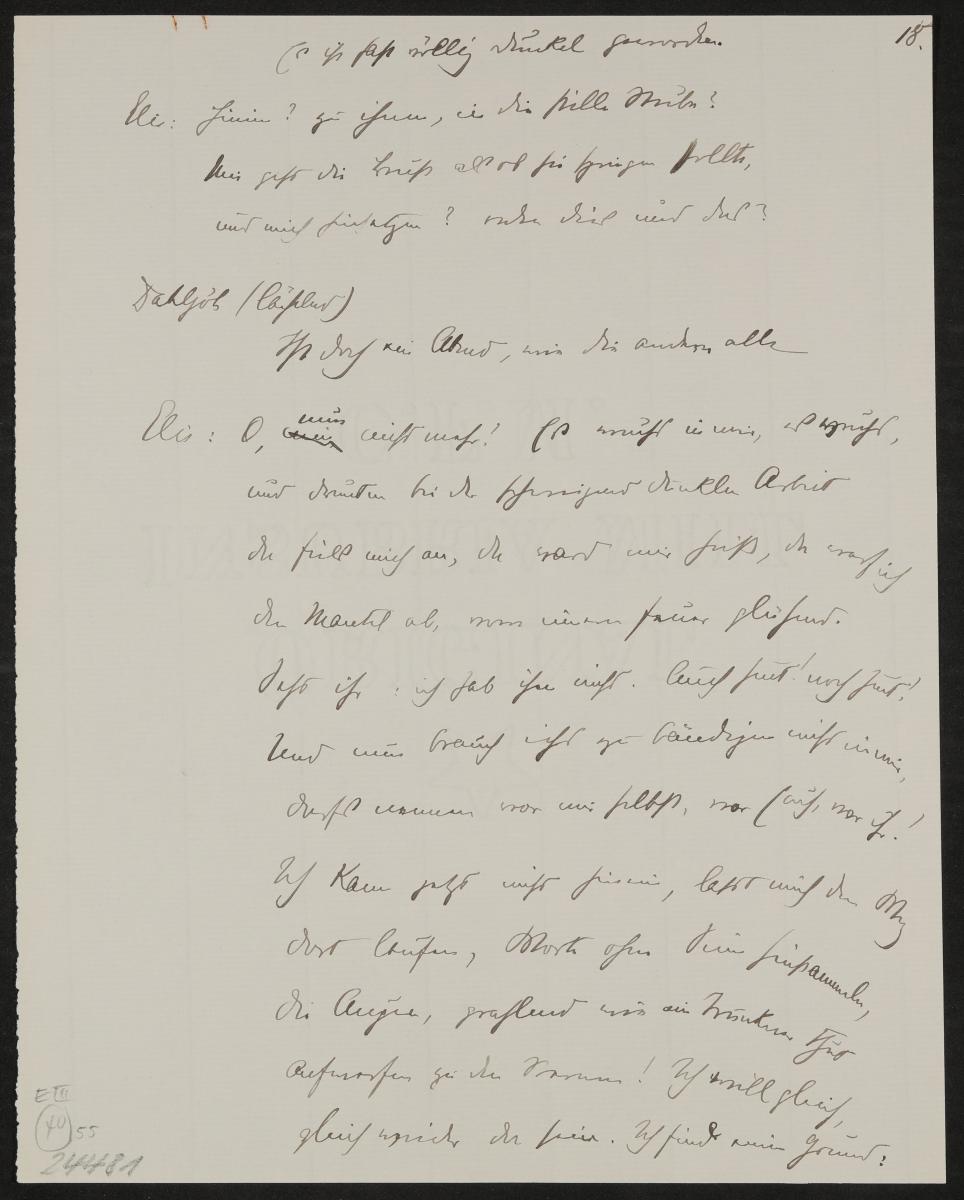 18.
Es ist fast völlig dunkel geworden.
Elis: Hinein? zu ihnen, in die stille Stube?
Mir geht die Brust als ob sie springen sollte,
und mich hinsetzen? reden dies und das?
Dahljöh (lächelnd)
Ist doch ein Abend, wie die andern alle
Elis: O, nun nicht mehr! Es wuchs in mir, es wuchs,
und drunten bei der schweigend dunklen Arbeit
da fiel's mich an, da ward mir heiß, da warf ich
den Mantel ab, vom innern Feuer glühend.
Seht ihr: ich hab ihn nicht. Auch heut! noch heut!
Und nun brauch ichs zu bändigen nicht in mir,
darfs nennen vor mir selbst, vor Euch, vor ihr!
Ich kann jetzt nicht hinein, lasst mich den Weg
dort laufen, Worte ohne Sinn hinstammeln,
die Augen, prahlend wie ein Trunkner thut
aufwerfen zu den Sternen! Ich will gleich,
gleich wieder da sein. Ich finde Grund:
E III
40
55
244481